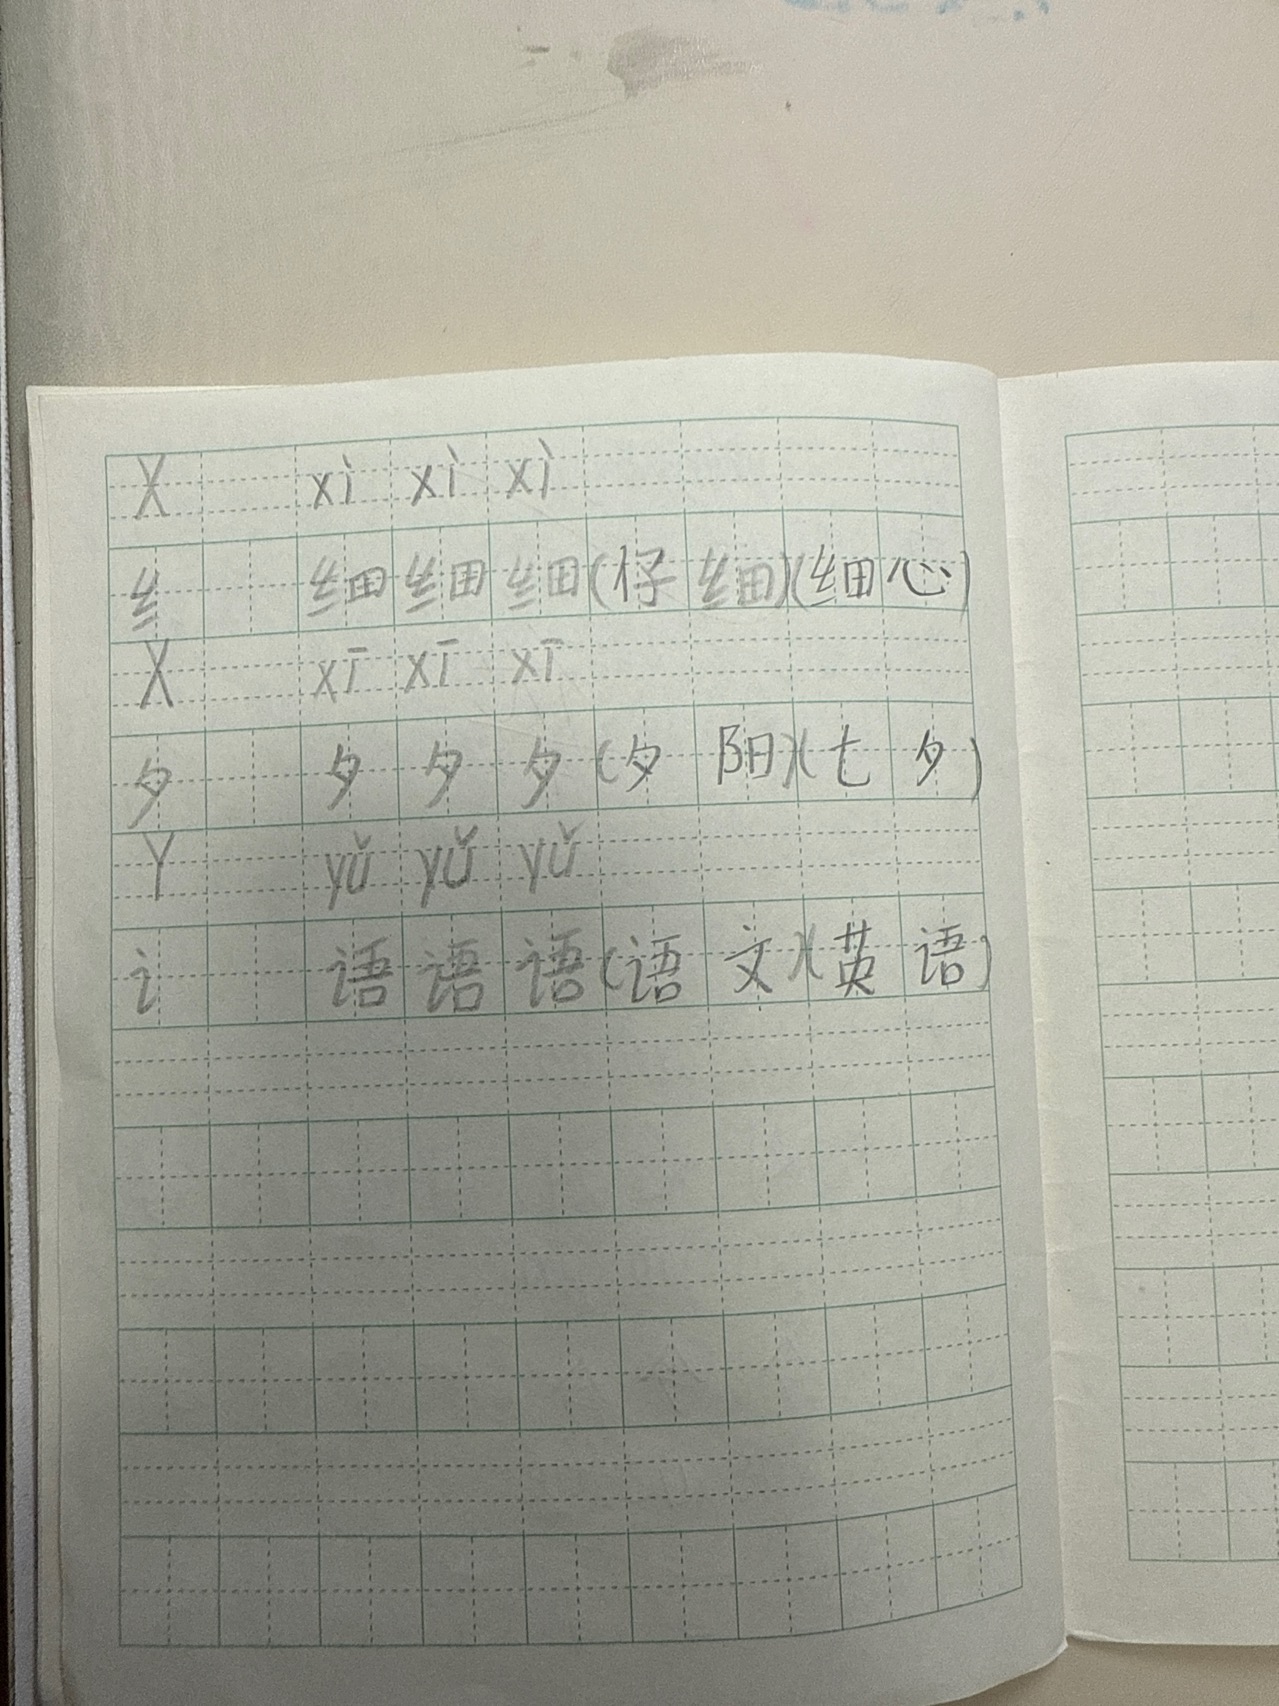 X xì xì xì
纟 细 细 细 (仔 细) (细 心)
X xī xī xī
夕 夕 夕 夕 (夕 阳) (七 夕)
Y yǔ yǔ yǔ
讠 语 语 语 (语 文) (英 语)